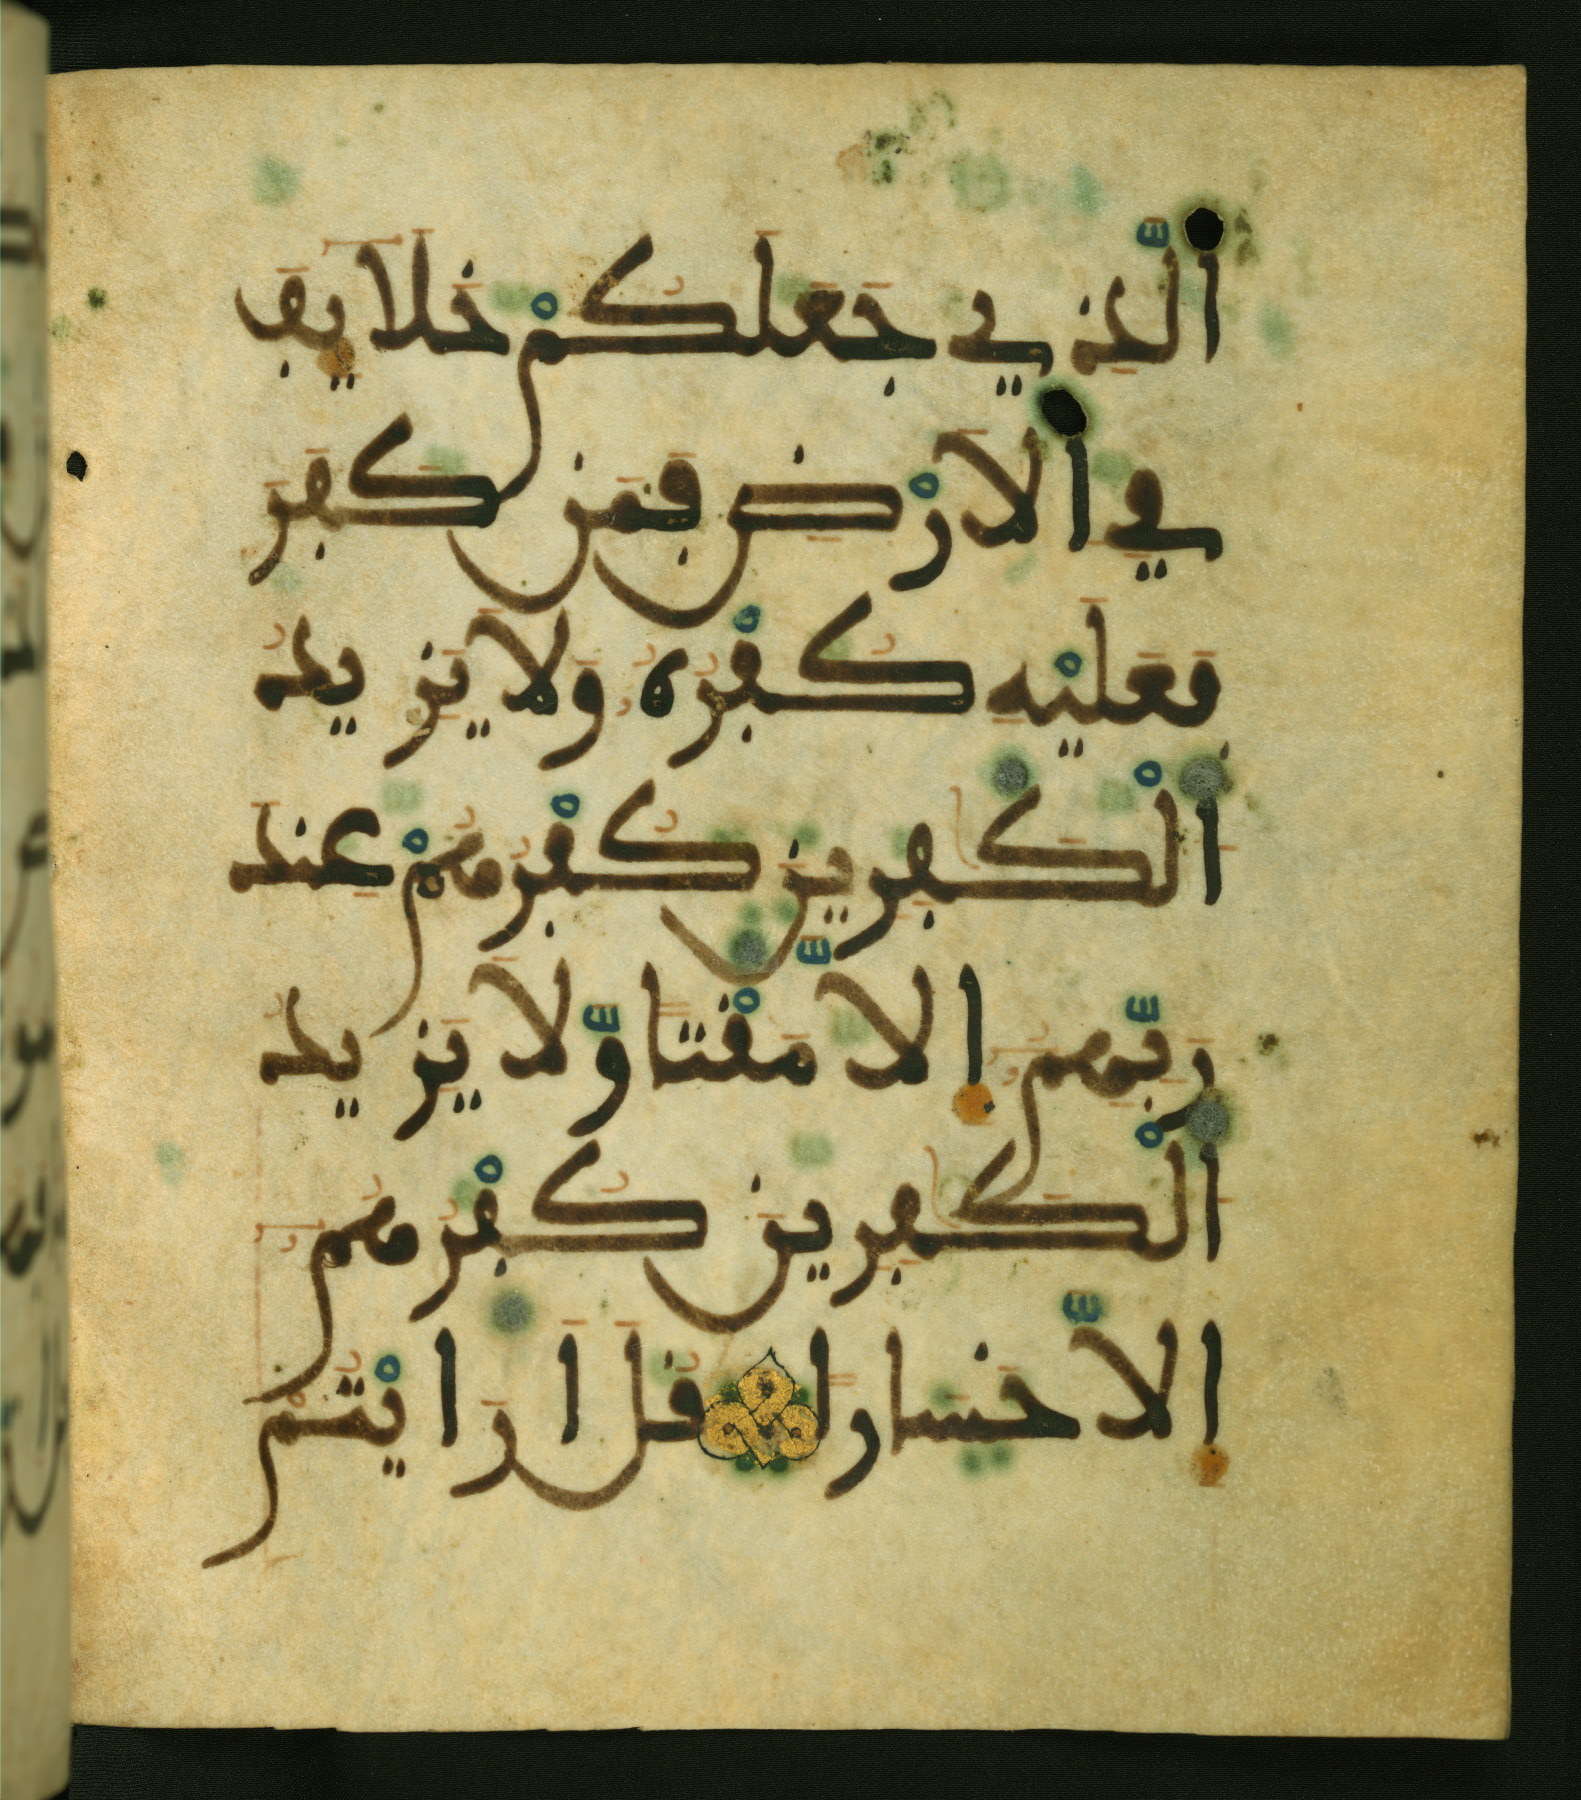 الَّذِي جَعَلَكُمْ خَلَايِفَ
فِي الَارْضِ فَمَن كَفَرَ
فَعَلَيْهِ كُفْرُهُ وَلَا يَزِيدُ
الْكَفِرِينَ كُفْرُهُمْ عِندَ
رَبِّهِمُ إِلَّا مَقْتًا وَّلَا يَزِيدُ
الْكَفِرِينَ كُفْرُهُمُ
إِلَّا خَسَارًا قُلَ ارَايْتُمْ